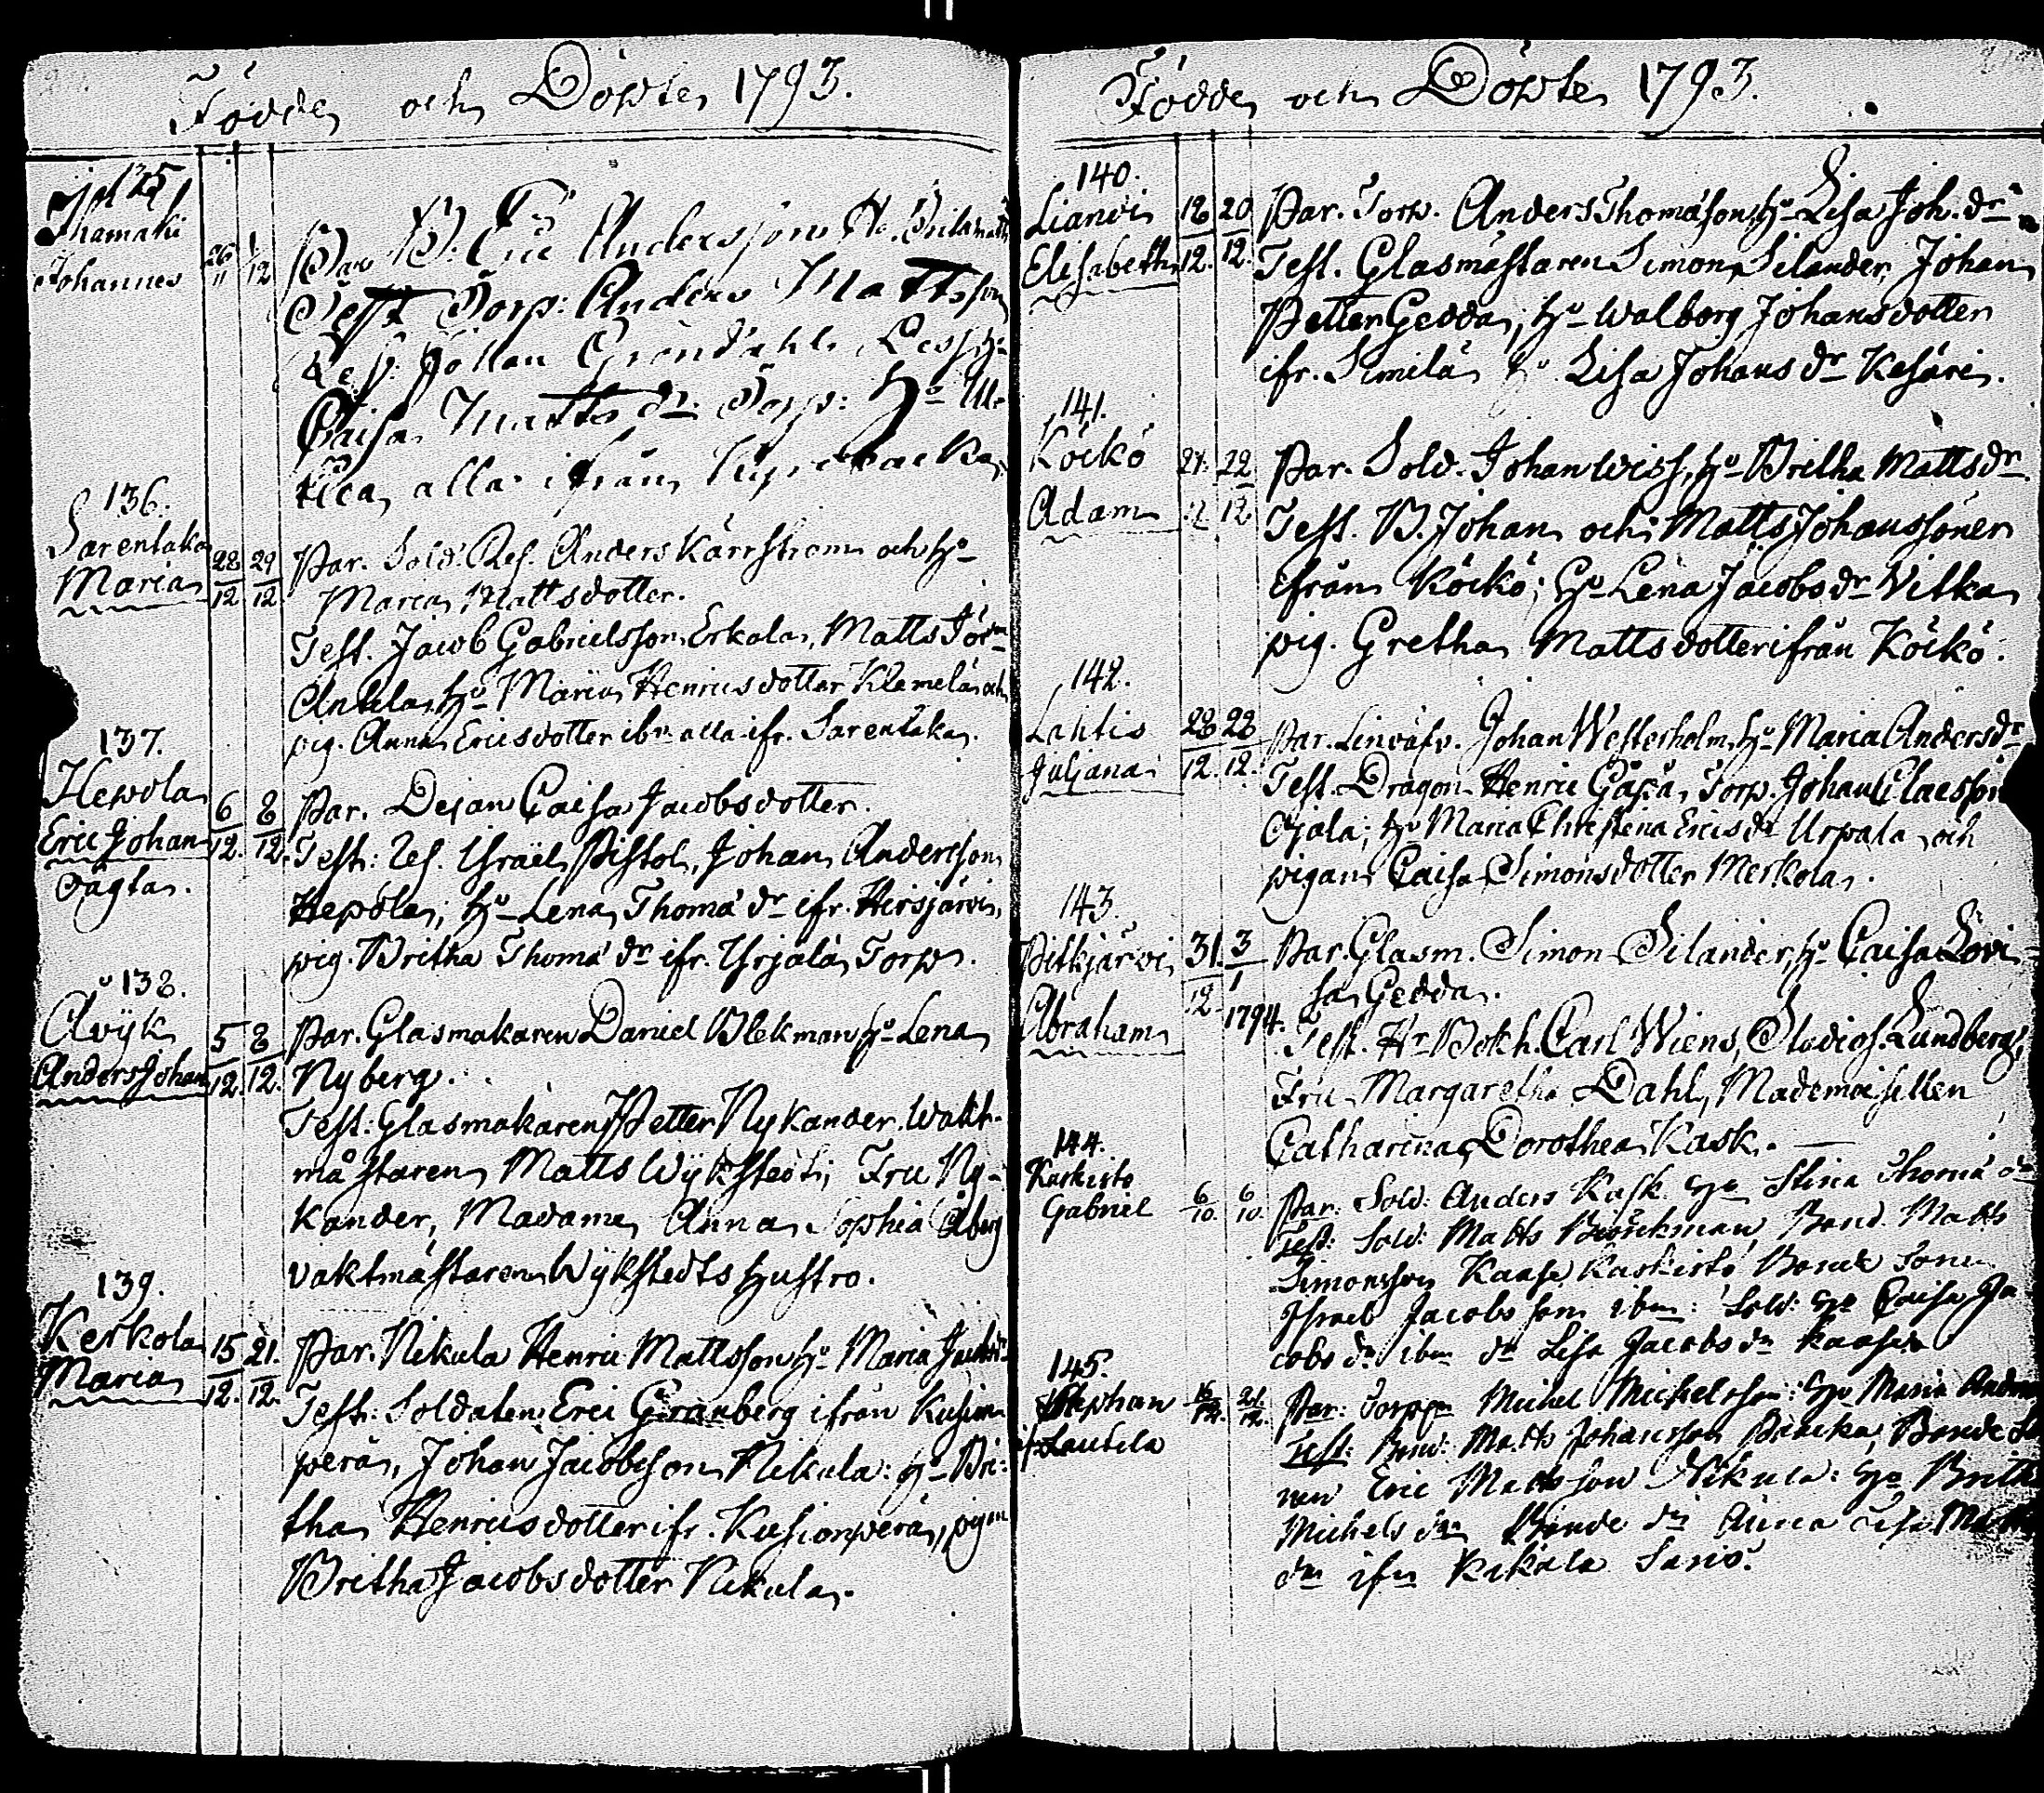 Födde och Döpte 1793.
135
Ihamäki
Johannes
26/11 1/12
Par B: Eric Andersson H. Brita
Test Torp: Anders Mattsson
Johan Gröndahl
Caisa Matts dr. Torp: Ho
alla ifrån
136.
Sarentaka
Maria
28/12 29/12
Par. Sold. Ref. Anders Kärrström och Ho
Maria Mattsdotter.
Test. Jacob Gabrielsson Erkala, Matts
Anttila, Ho Maria Henricsdotter Klemelä och
pig. Anna Ericsdotter ibm alla ifr. Sarentaka.
137.
Hepola
Eric Johan
oägta.
6/12. 8/12.
Par. Dejan Caisa Jacobsdotter.
Test: Ref. Israel Pistol, Johan Andersson
Hepola; Ho Lena Thomæ dr ifr. Hirsjärvi,
pig. Britha Thomæ dr ifr. Urjala Torp.
138.
Avijk
Anders Johan
5/12. 8/12.
Par. Glasmakaren Daniel Blekman Ho Lena
Nyberg.
Test: Glasmakaren Petter Nykander. Wakt-
mästaren Matts Wijkstedt; Fru Ny-
kander, Madame Anna Sophia Åberg
vaktmästaren Wijkstedts hustro.
139.
Kerkola
Maria
15/12. 21./12.
Par. Nikula Henric Mattsson Ho Maria
Test: Soldaten Eric Granberg ifrån Kusion
perä, Johan Jacobsson Nikula: Ho Bri-
tha Henricsdotter ifr. Kusionperä, pign
Britha Jacobsdotter Nikula.
Födde och Döpte 1793.
140.
Lianvi
Elisabeth
18/12. 20/12.
Par. Torp. Anders Thomæson, Ho Lisa Joh. dr
Test. Glasmästaren Simon Silander, Johan
Petter Gedda; Ho Walborg Johansdotter
ifr. Similä Ho Lisa Johans dr Kesäri.
141.
Köckö
Adam
21./12 22/12
Par. Sold. Johan Wiss, Ho Britha Mattsdr.
Test. B. Johan och Matts Johanssöner
ifrån Köckö; Ho Lena Jacobsdr Vitka
pig. Gretha Mattsdotter ifrån Köckö.
142.
Lahtis
Juljana
28/12. 28/12.
Par. Linväfv. Johan Westerholm, Ho Maria Andersdr
Test. Dragon Henric Torp. Johan Claesson
Ojala; Ho Maria Christena Ericsdr Urpala och
pigan Caisa Simonsdotter Merkola.
143.
Pitkjärvi
Abraham
31./12. 3/1 1794.
Par. Glasm. Simon Silander, Ho Caisa Lovi-
sa Gedda.
Test. Hr Bokh. Carl Wiens, Studios. Lundberg,
Fru Margaretha Dahl, Mademoisellen
Catharina Dorothea Kask.
144.
Kaskisto
Gabriel
6/10. 6/10.
Par: Sold: Anders Kask Ho Stina Thomæ dr
Test: Sold: Matts Biörckman, Bond. Matts
Simonsson Kaase Kaskisto Bonde Sonen
Israel Jacobsson ibm: Sold: Ho Caisa Ja
cobs dr ibm dr Lisa Jacobs dr Kaase.
145.
Stephan
Lautela
16/12. 21/12.
Par: Torppn Michel Michelsson: Ho Maria
Test: Bond: Matts Johansson Bonde So
nen Eric Mattsson Nikula: Ho Brita
Michels drn Bonde dr Anna Lisa
drn ifrn